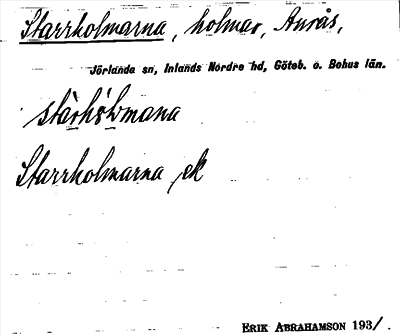 Starrholmarna, holmar, Anrås,
Jörlanda sn, Inlands Nordre hd, Göteb. o. Bohus län.
Starrholmarna ek
ERIK ABRAHAMSON 193/.